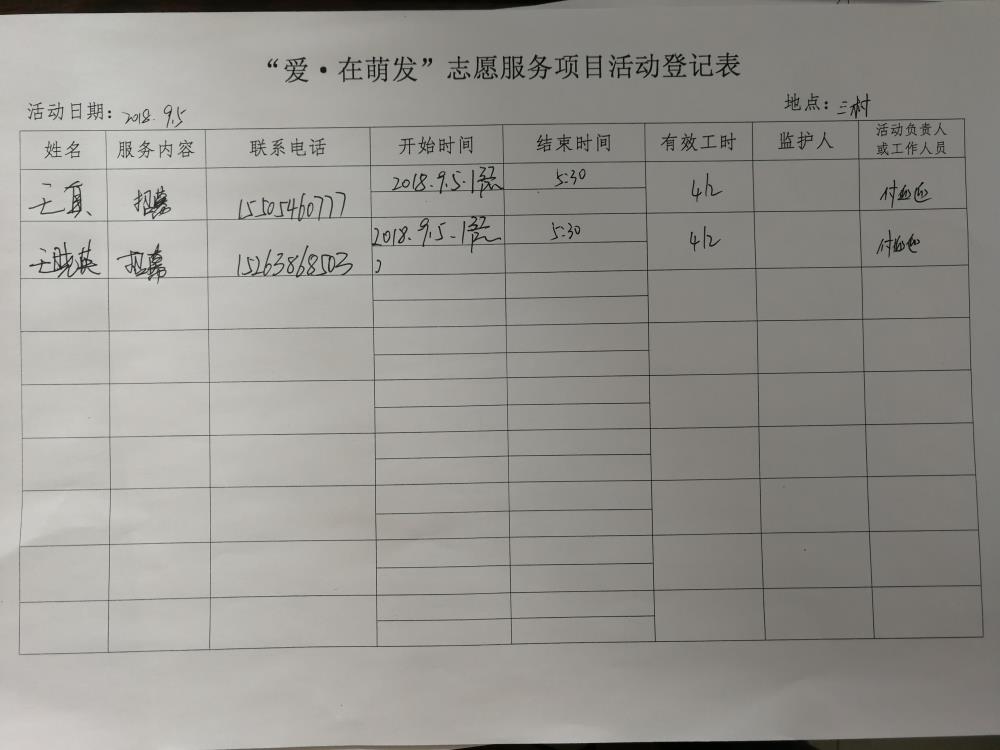 “爱·在萌发”志愿服务项目活动登记表
活动日期：2018.9.5 地点：三村
姓名 服务内容 联系电话 开始时间 结束时间 有效工时 监护人 活动负责人或工作人员
王真 招募 15505460777 2018.9.5. 5:30 4h
王晓英 招募 15263868503 2018.9.5. 5:30 4h